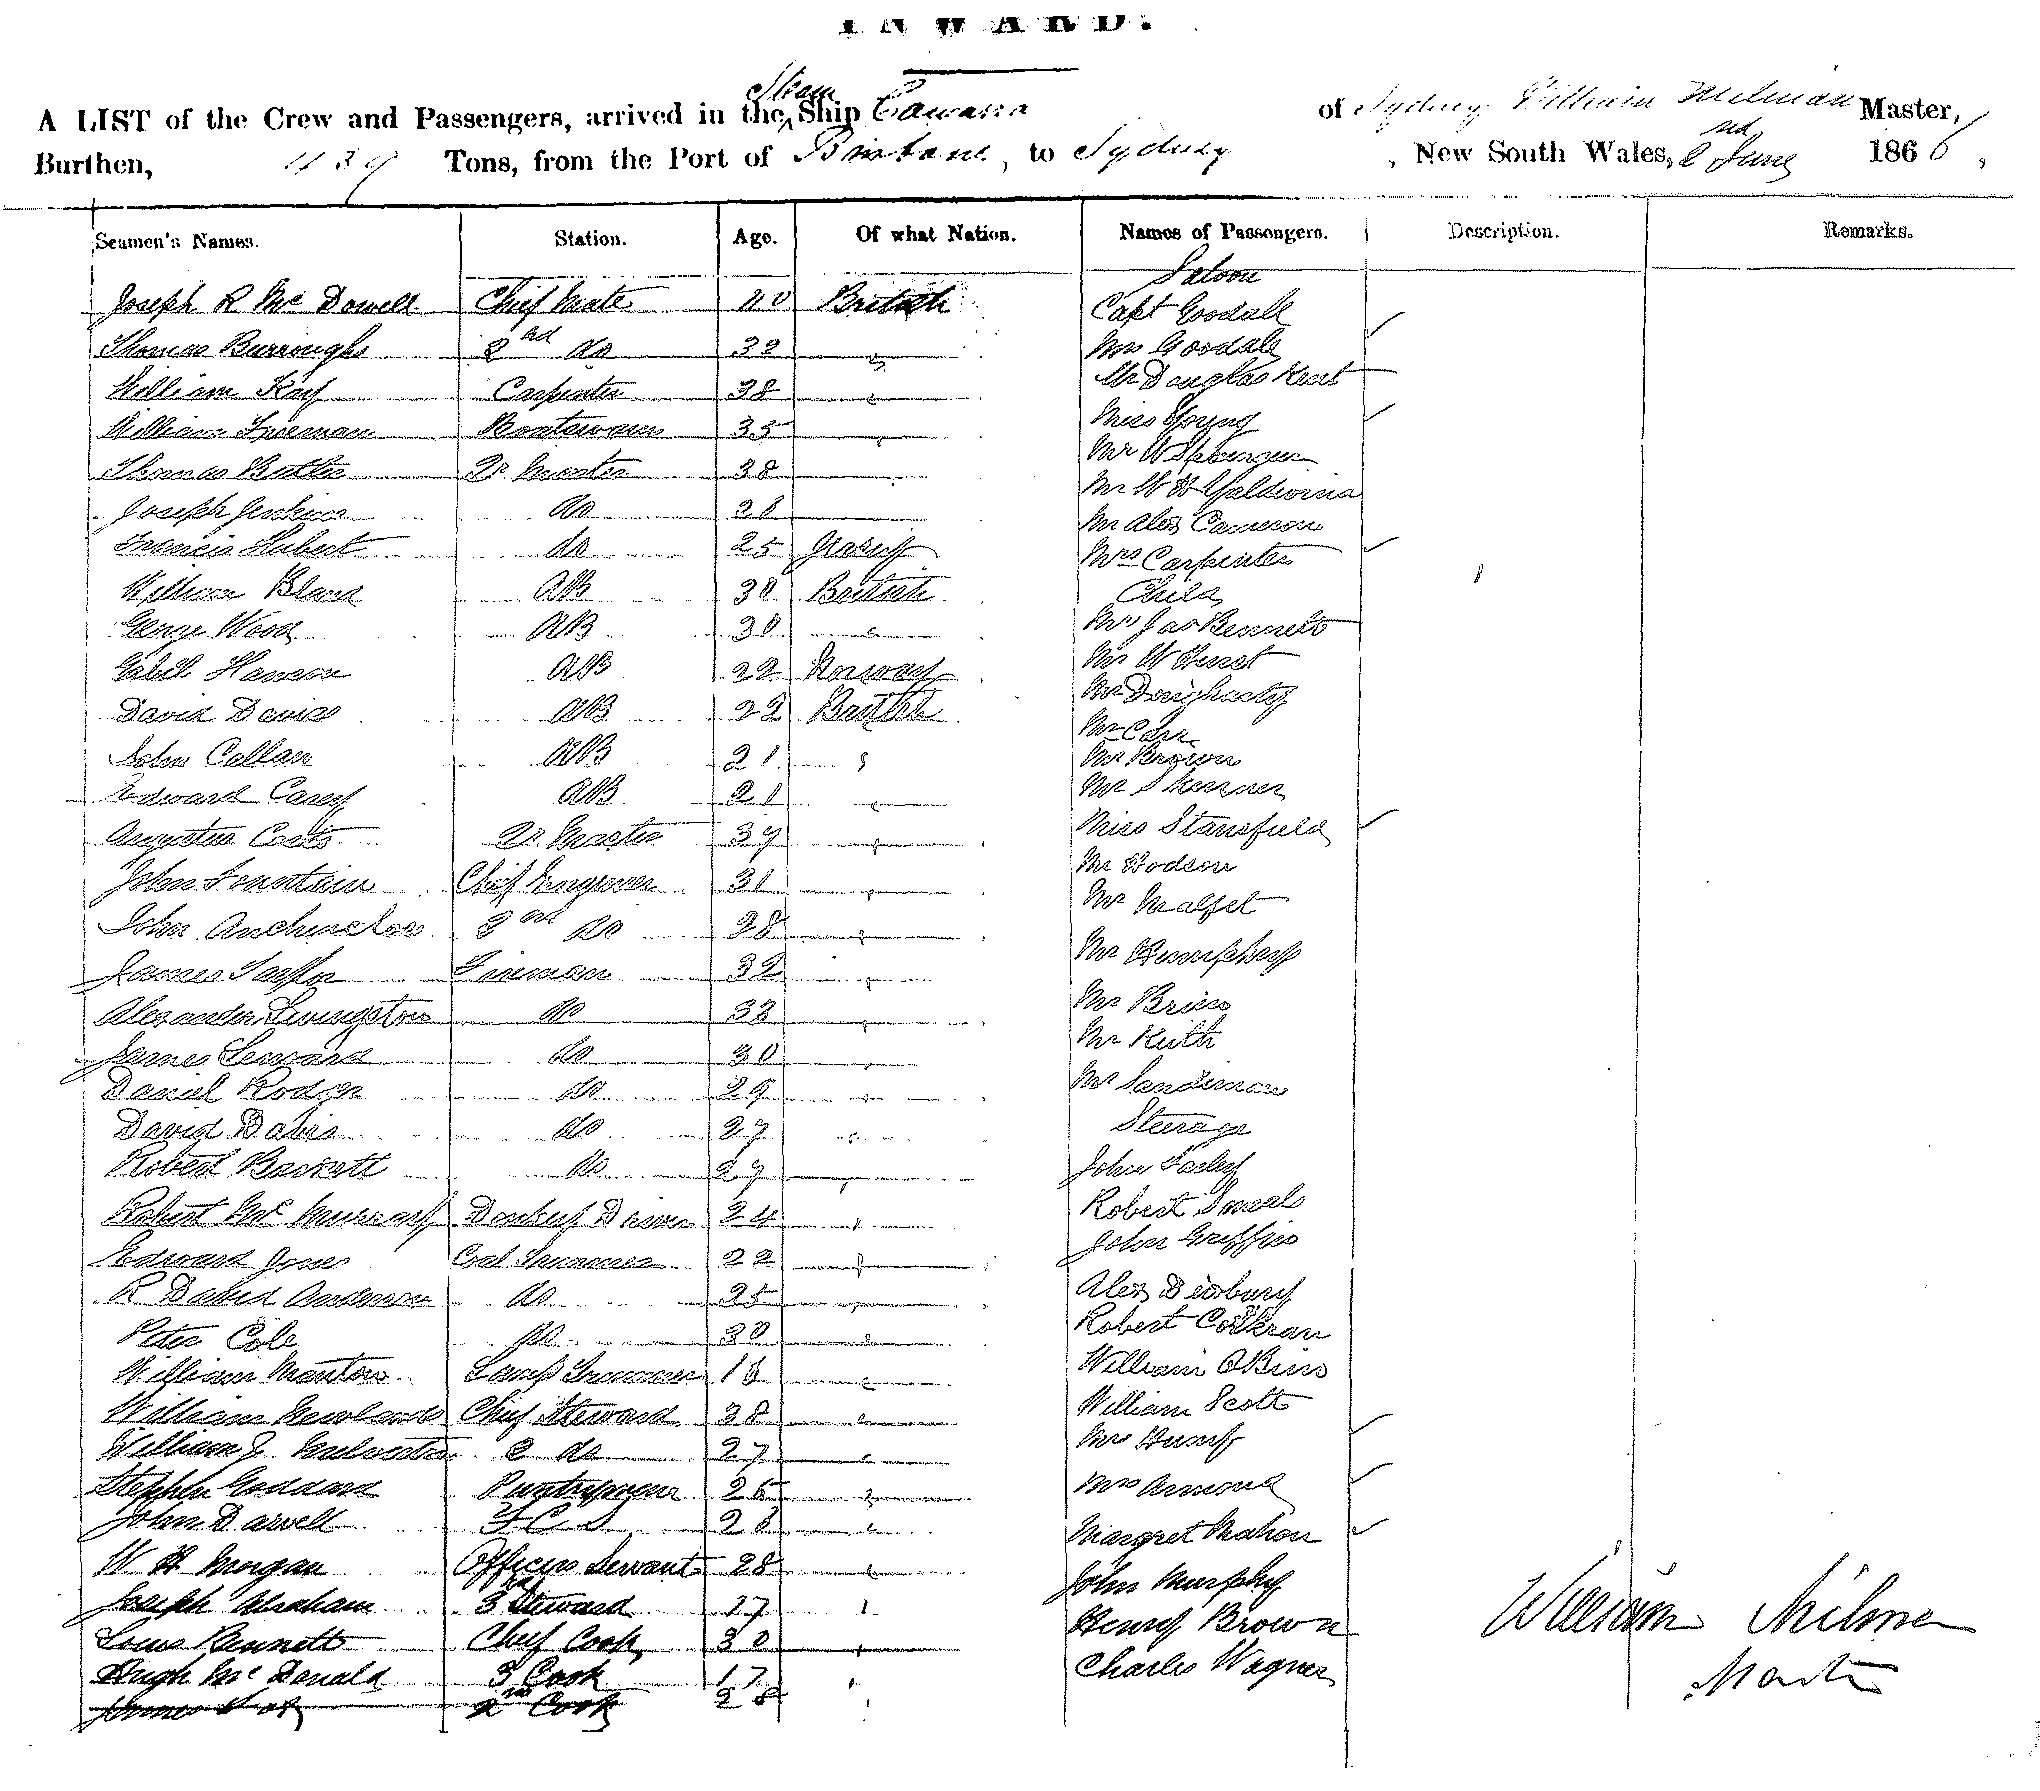 INWARD.
A LIST of the Crew and Passengers, arrived in the Steam Ship Cawarra of Sydney William Milman Master,
Burthen, 439 Tons, from the Port of Brisbane, to Sydney, New South Wales, 2nd June 1866,
Seamen's Names. Station. Age. Of what Nation. Names of Passengers. Description. Remarks.
Saloon
Joseph R Mc Dowell Chief Mate 20 British Capt Goodall
Thomas Burroughs 2nd do 32 " Mrs Goodall
William Kay Carpenter 38 " Mr Douglas Kent
William Freeman Boatswain 35 " Miss Young
Thomas Butler Qr Master 38 Mr W
Joseph Jenkins do 28 Mr W H
Francis Hubert do 25 Mr Alex Cameron
Mrs Carpenter
William Bland AB 30 British Child
George Wood AB 30 " Mr Jas Bennett
Hanson AB 22 Norway Mr W Hurst
David Davies AB 22 British Mr Dougharty
John Callan AB 21 " Mr Carr
Mr Brown
Edward Carey AB 21 " Mr Skinner
Augustus Qr Master 37 " Miss Stansfield
John Fountain Chief Engineer 31 " Mr Hodson
John 2nd do 28 " Mr
James Taylor Fireman 32 " Mr Humphery
Alexander Livingston do 32 " Mr
James do 30 " Mr Keith
Daniel do 29 " Mr Sandeman
David do 27 " Steerage
Robert Beckett do 27 " John Farley
Robert Mc Murray Donkey Driver 24 " Robert
Edward Jones Coal Trimmer 22 " John Griffin
R David Anderson do 25 " Alex
Peter Cole do 30 " Robert Corkran
William Manton Lamp Trimmer 18 " William
William Newlands Chief Steward 38 " William Scott
William J 2 do 27 " Mrs
Stephen Goddard Pantryman 26 " Mrs
John Darvell F C S 28 " Margret Mahon
W H Morgan Officers Servant 28 " John Murphy
Joseph Abraham 3 Steward 17 " Henry Brown William Milman
Louis Bennett Chief Cook 30 " Charles Wagner Master
Hugh Mc Donald 3 Cook 17 "
James 2nd Cook 28 "